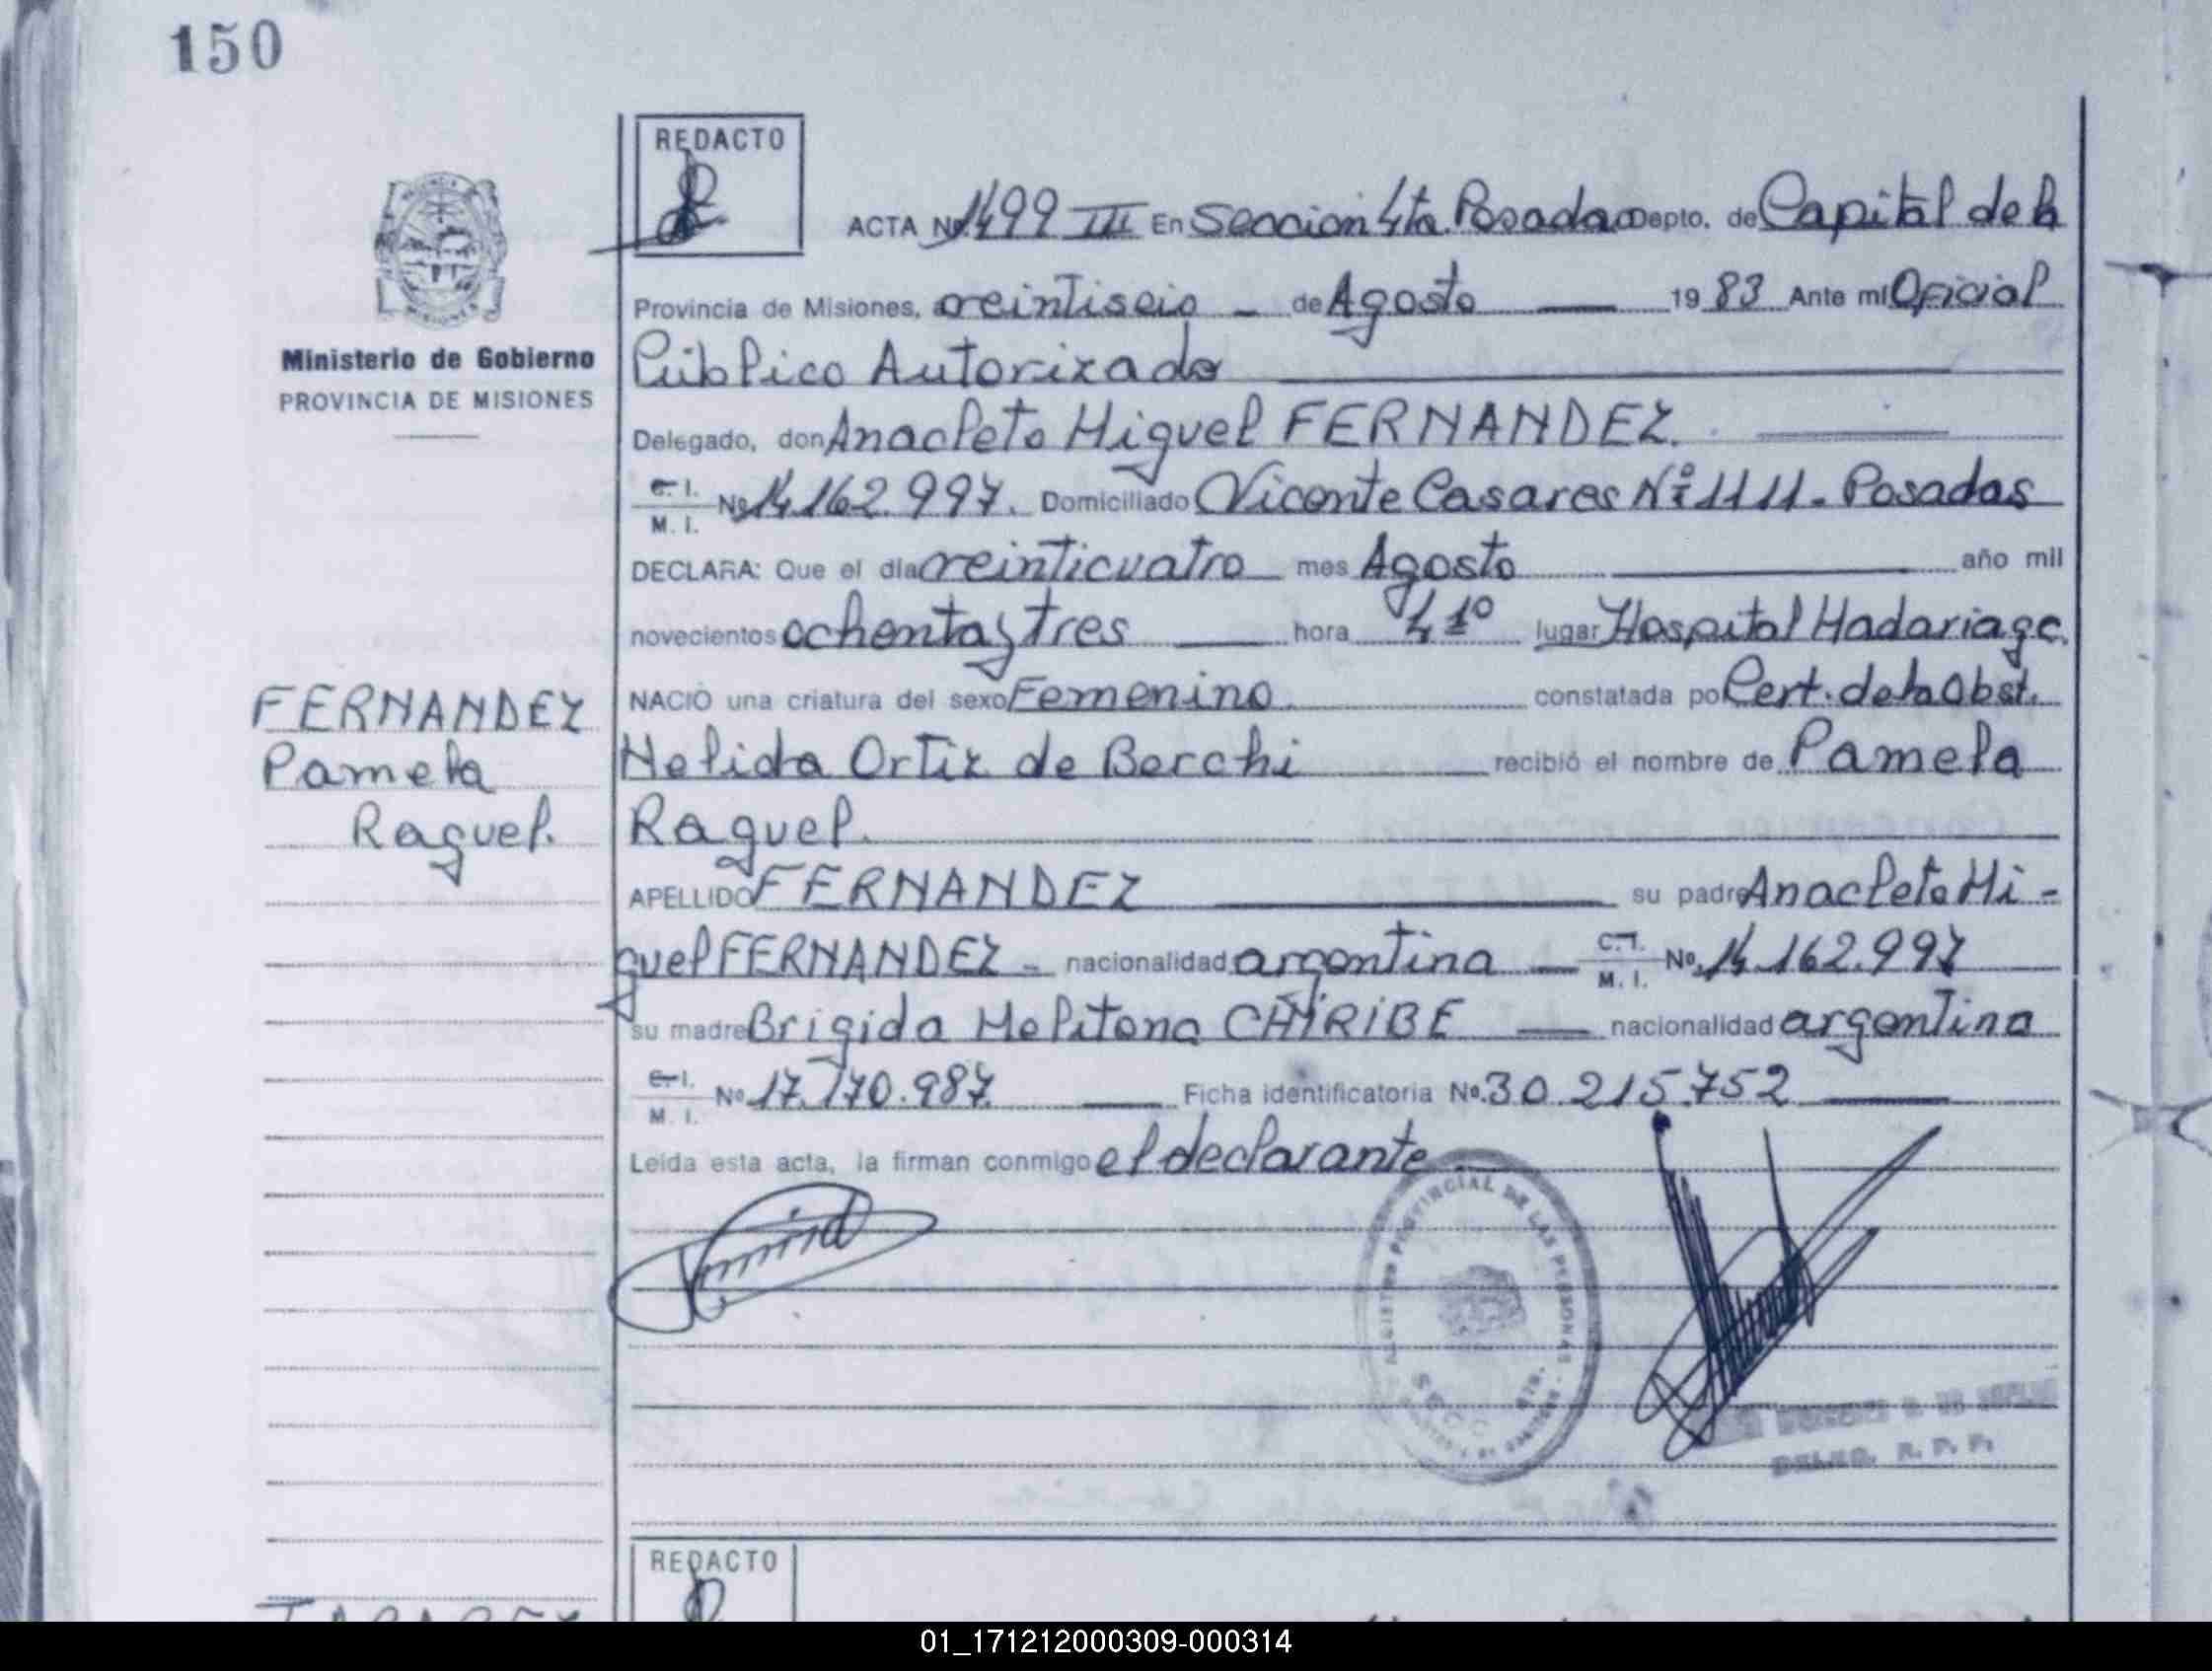 150
REDACTO
ACTA Nº 1499 III En Seccion 4ta. Posadas Depto. de Capital de la
Provincia de Misiones, a veintiseis - de Agosto 19 83 Ante mí Oficial
Ministerio de Gobierno
PROVINCIA DE MISIONES
Público Autorizado
Delegado, don Anacleto Miguel FERNANDEZ.
C. I. M. I. Nº 14.162.997. Domiciliado Vicente Casares Nº 1111. Posadas
DECLARA: Que el día veinticuatro mes Agosto año mil
novecientos ochenta y tres hora lugar Hospital Madariaga
NACIÓ una criatura del sexo Femenino constatada por Cert. de la Obst.
FERNANDEZ
Pamela
Raquel.
Nelida Ortiz de Berchi recibió el nombre de Pamela
Raquel.
APELLIDO FERNANDEZ su padre Anacleto Mi-
guel FERNANDEZ - nacionalidad argentina C. I. M. I. Nº 14.162.997
su madre Brigida Melitona nacionalidad argentina
C. I. M. I. Nº 17.170.987. Ficha identificatoria Nº 30.215.752
Leída esta acta, la firman conmigo el declarante
REGISTRO PROVINCIAL DE LAS PERSONAS
SECC
DELEG. R. P. P.
REDACTO
01_171212000309-000314